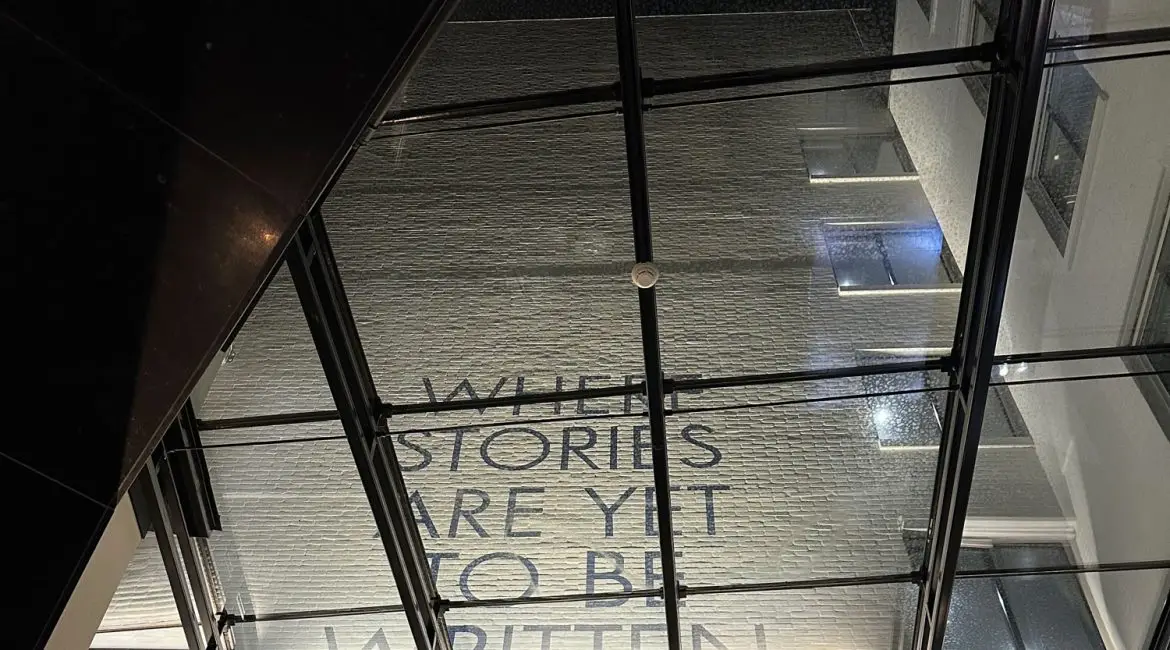 WHERE
STORIES
ARE YET
TO BE
WRITTEN